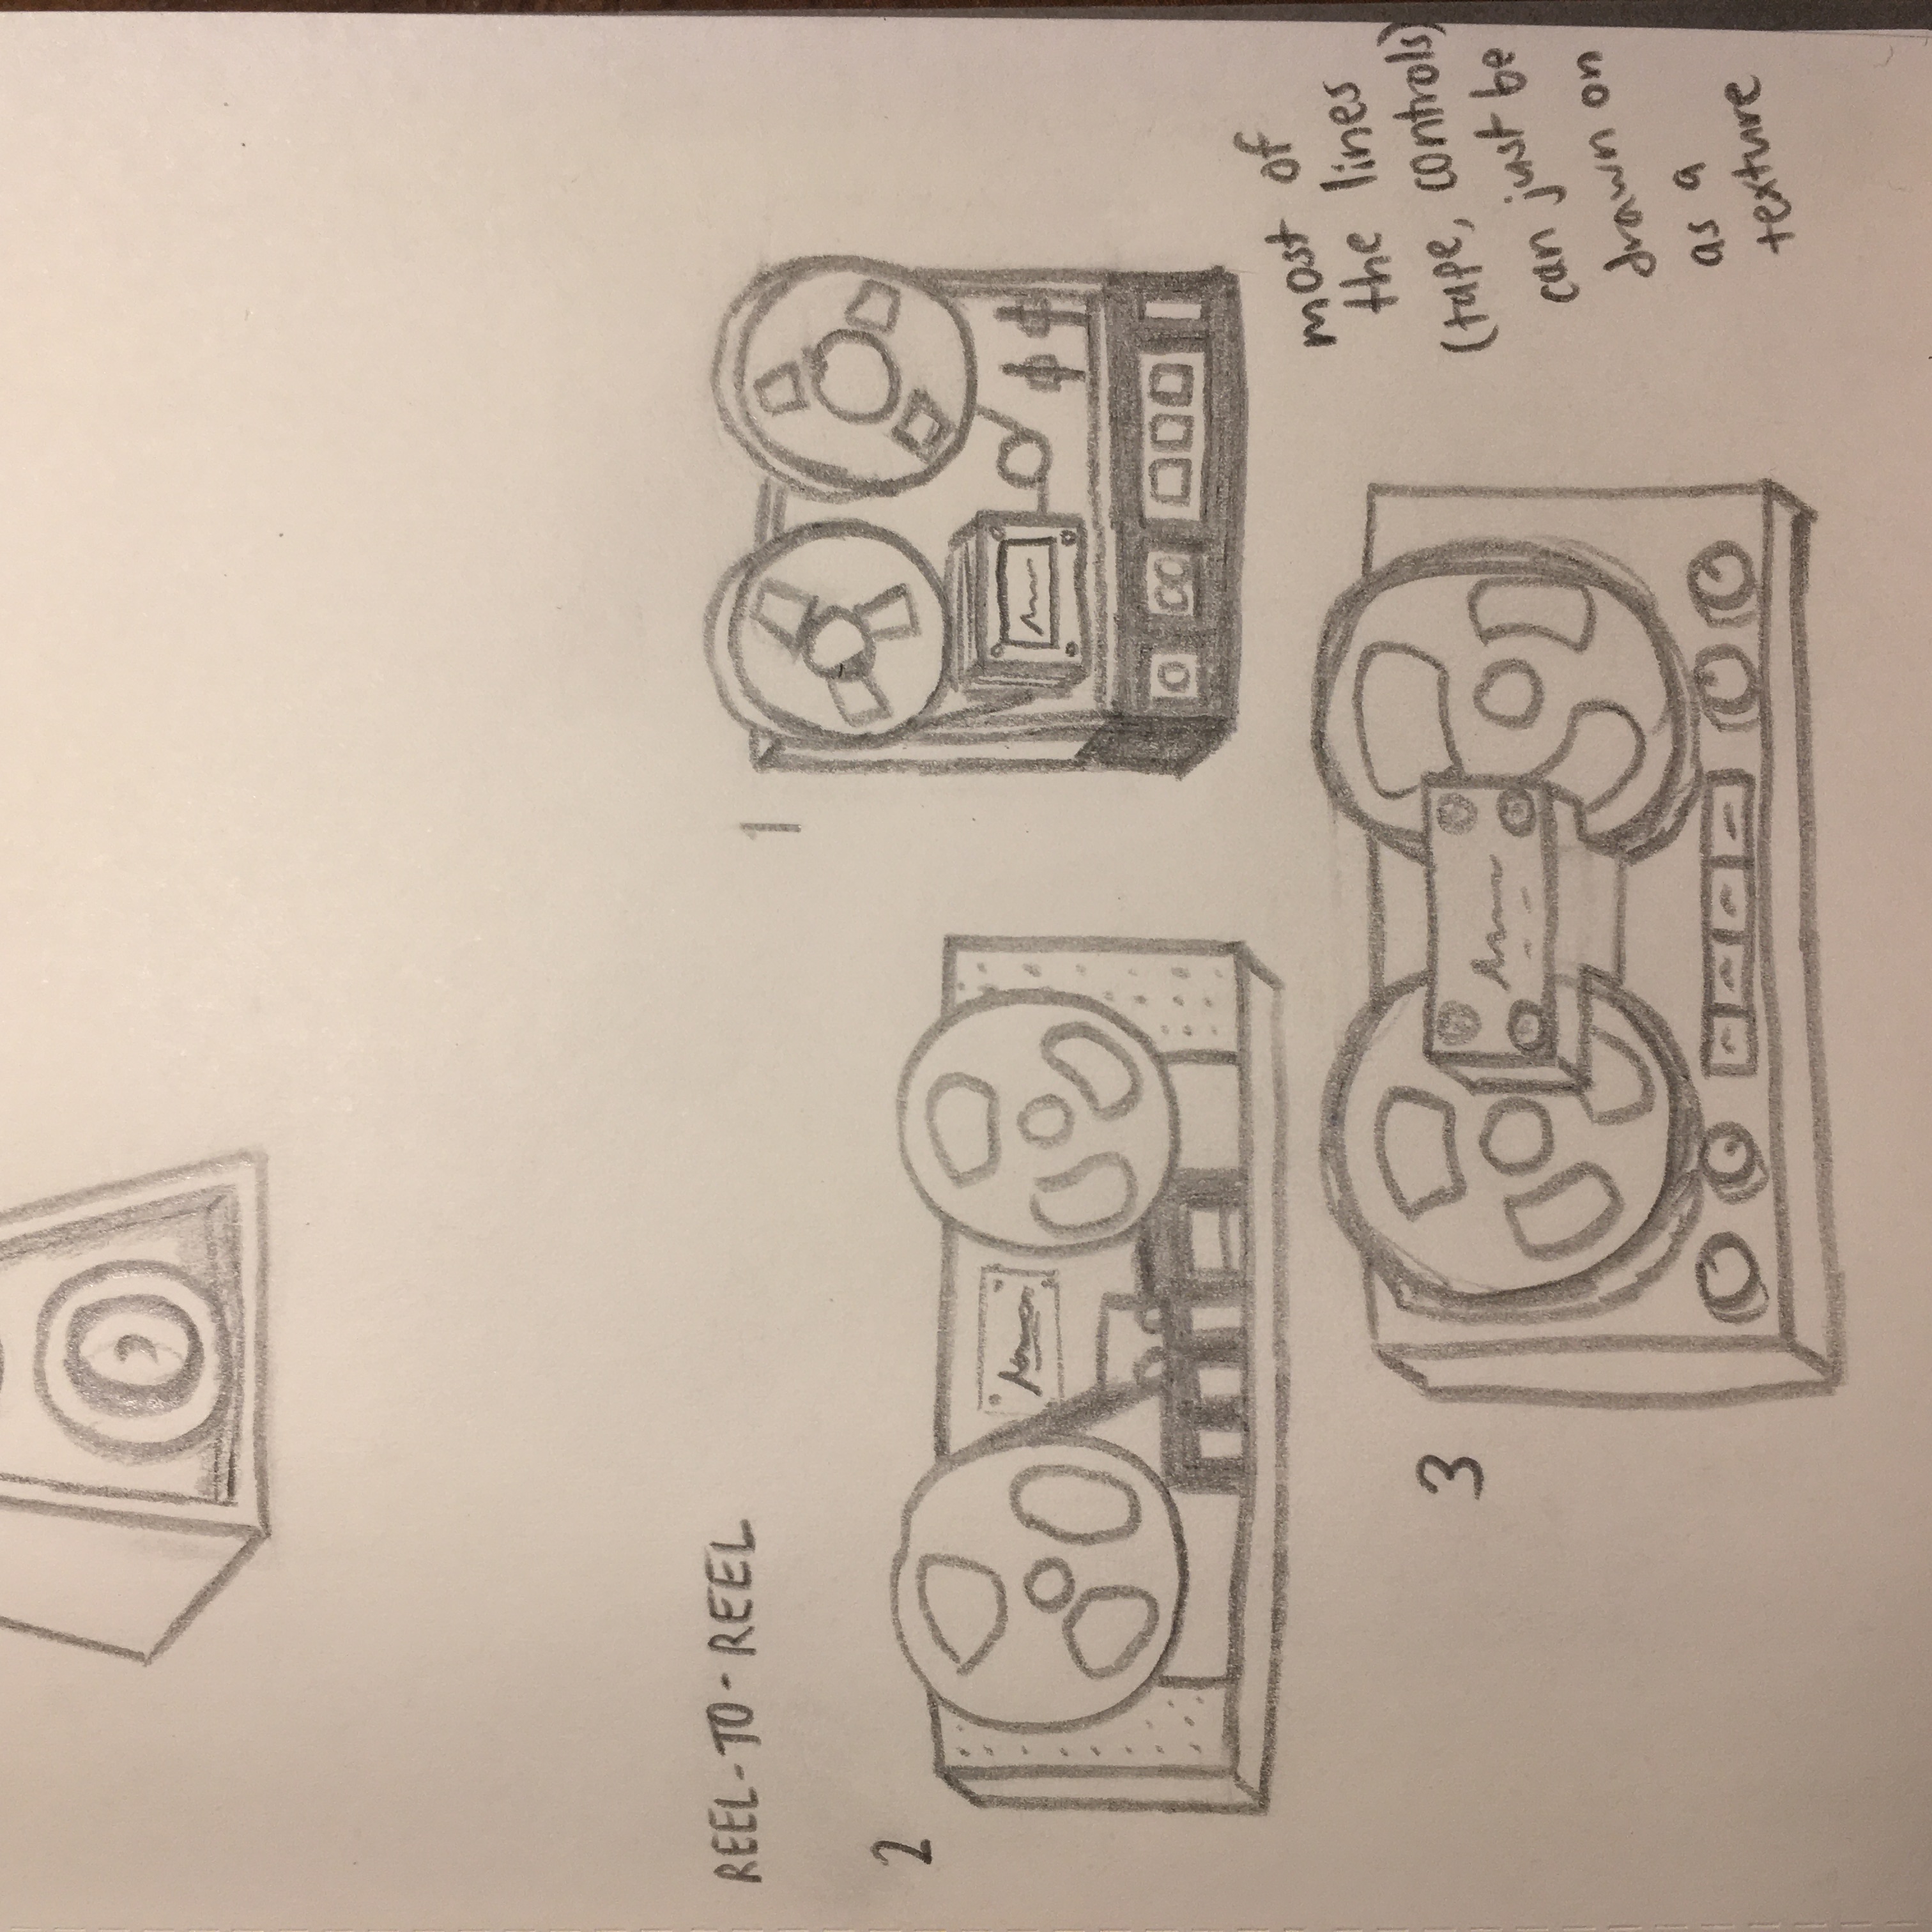 REEL-TO-REEL
1
2
3
most of
the lines
(tape, controls)
can just be
drawn on
as a
texture